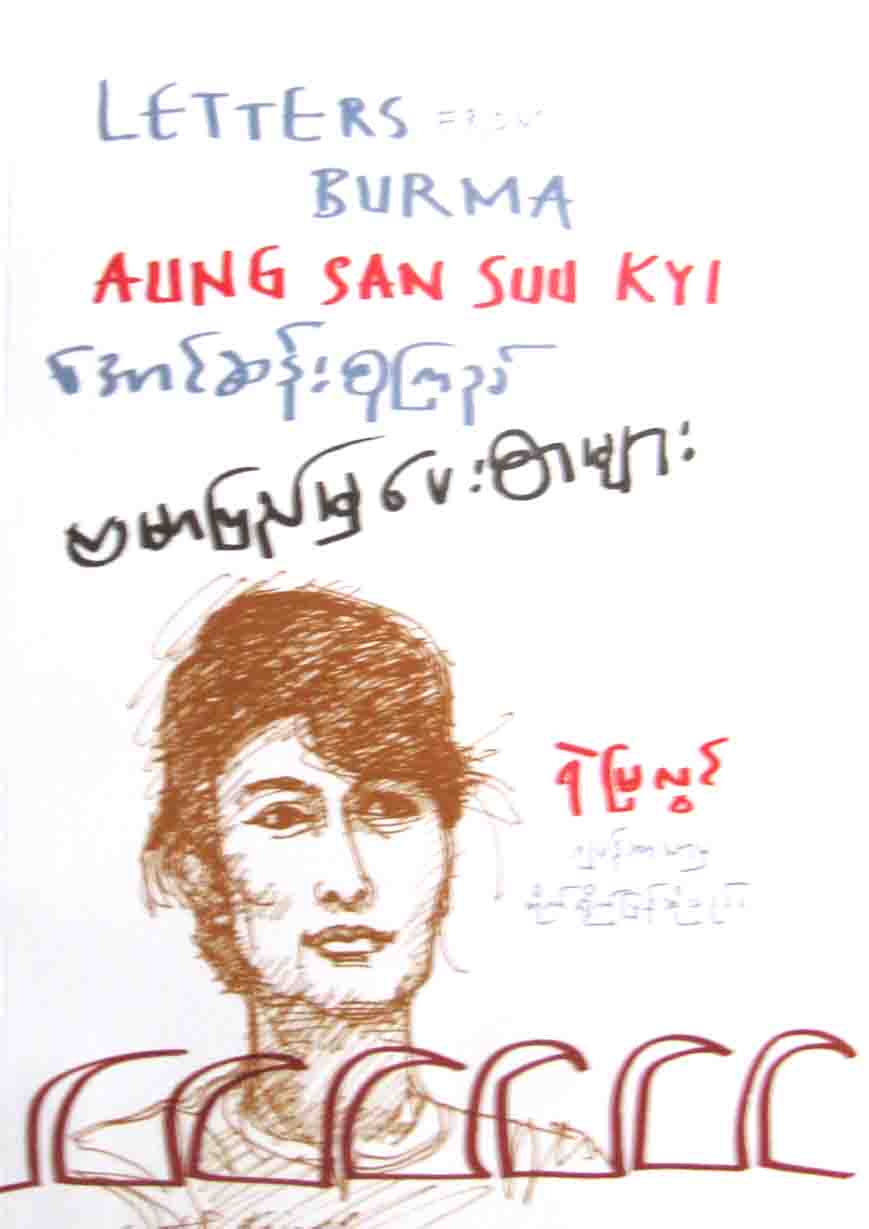 LETTERS FROM
BURMA
AUNG SAN SUU KYI
အောင်ဆန်းစုကြည်
ဗမာပြည်မှပေးစာများ
ရဲမြလွင်